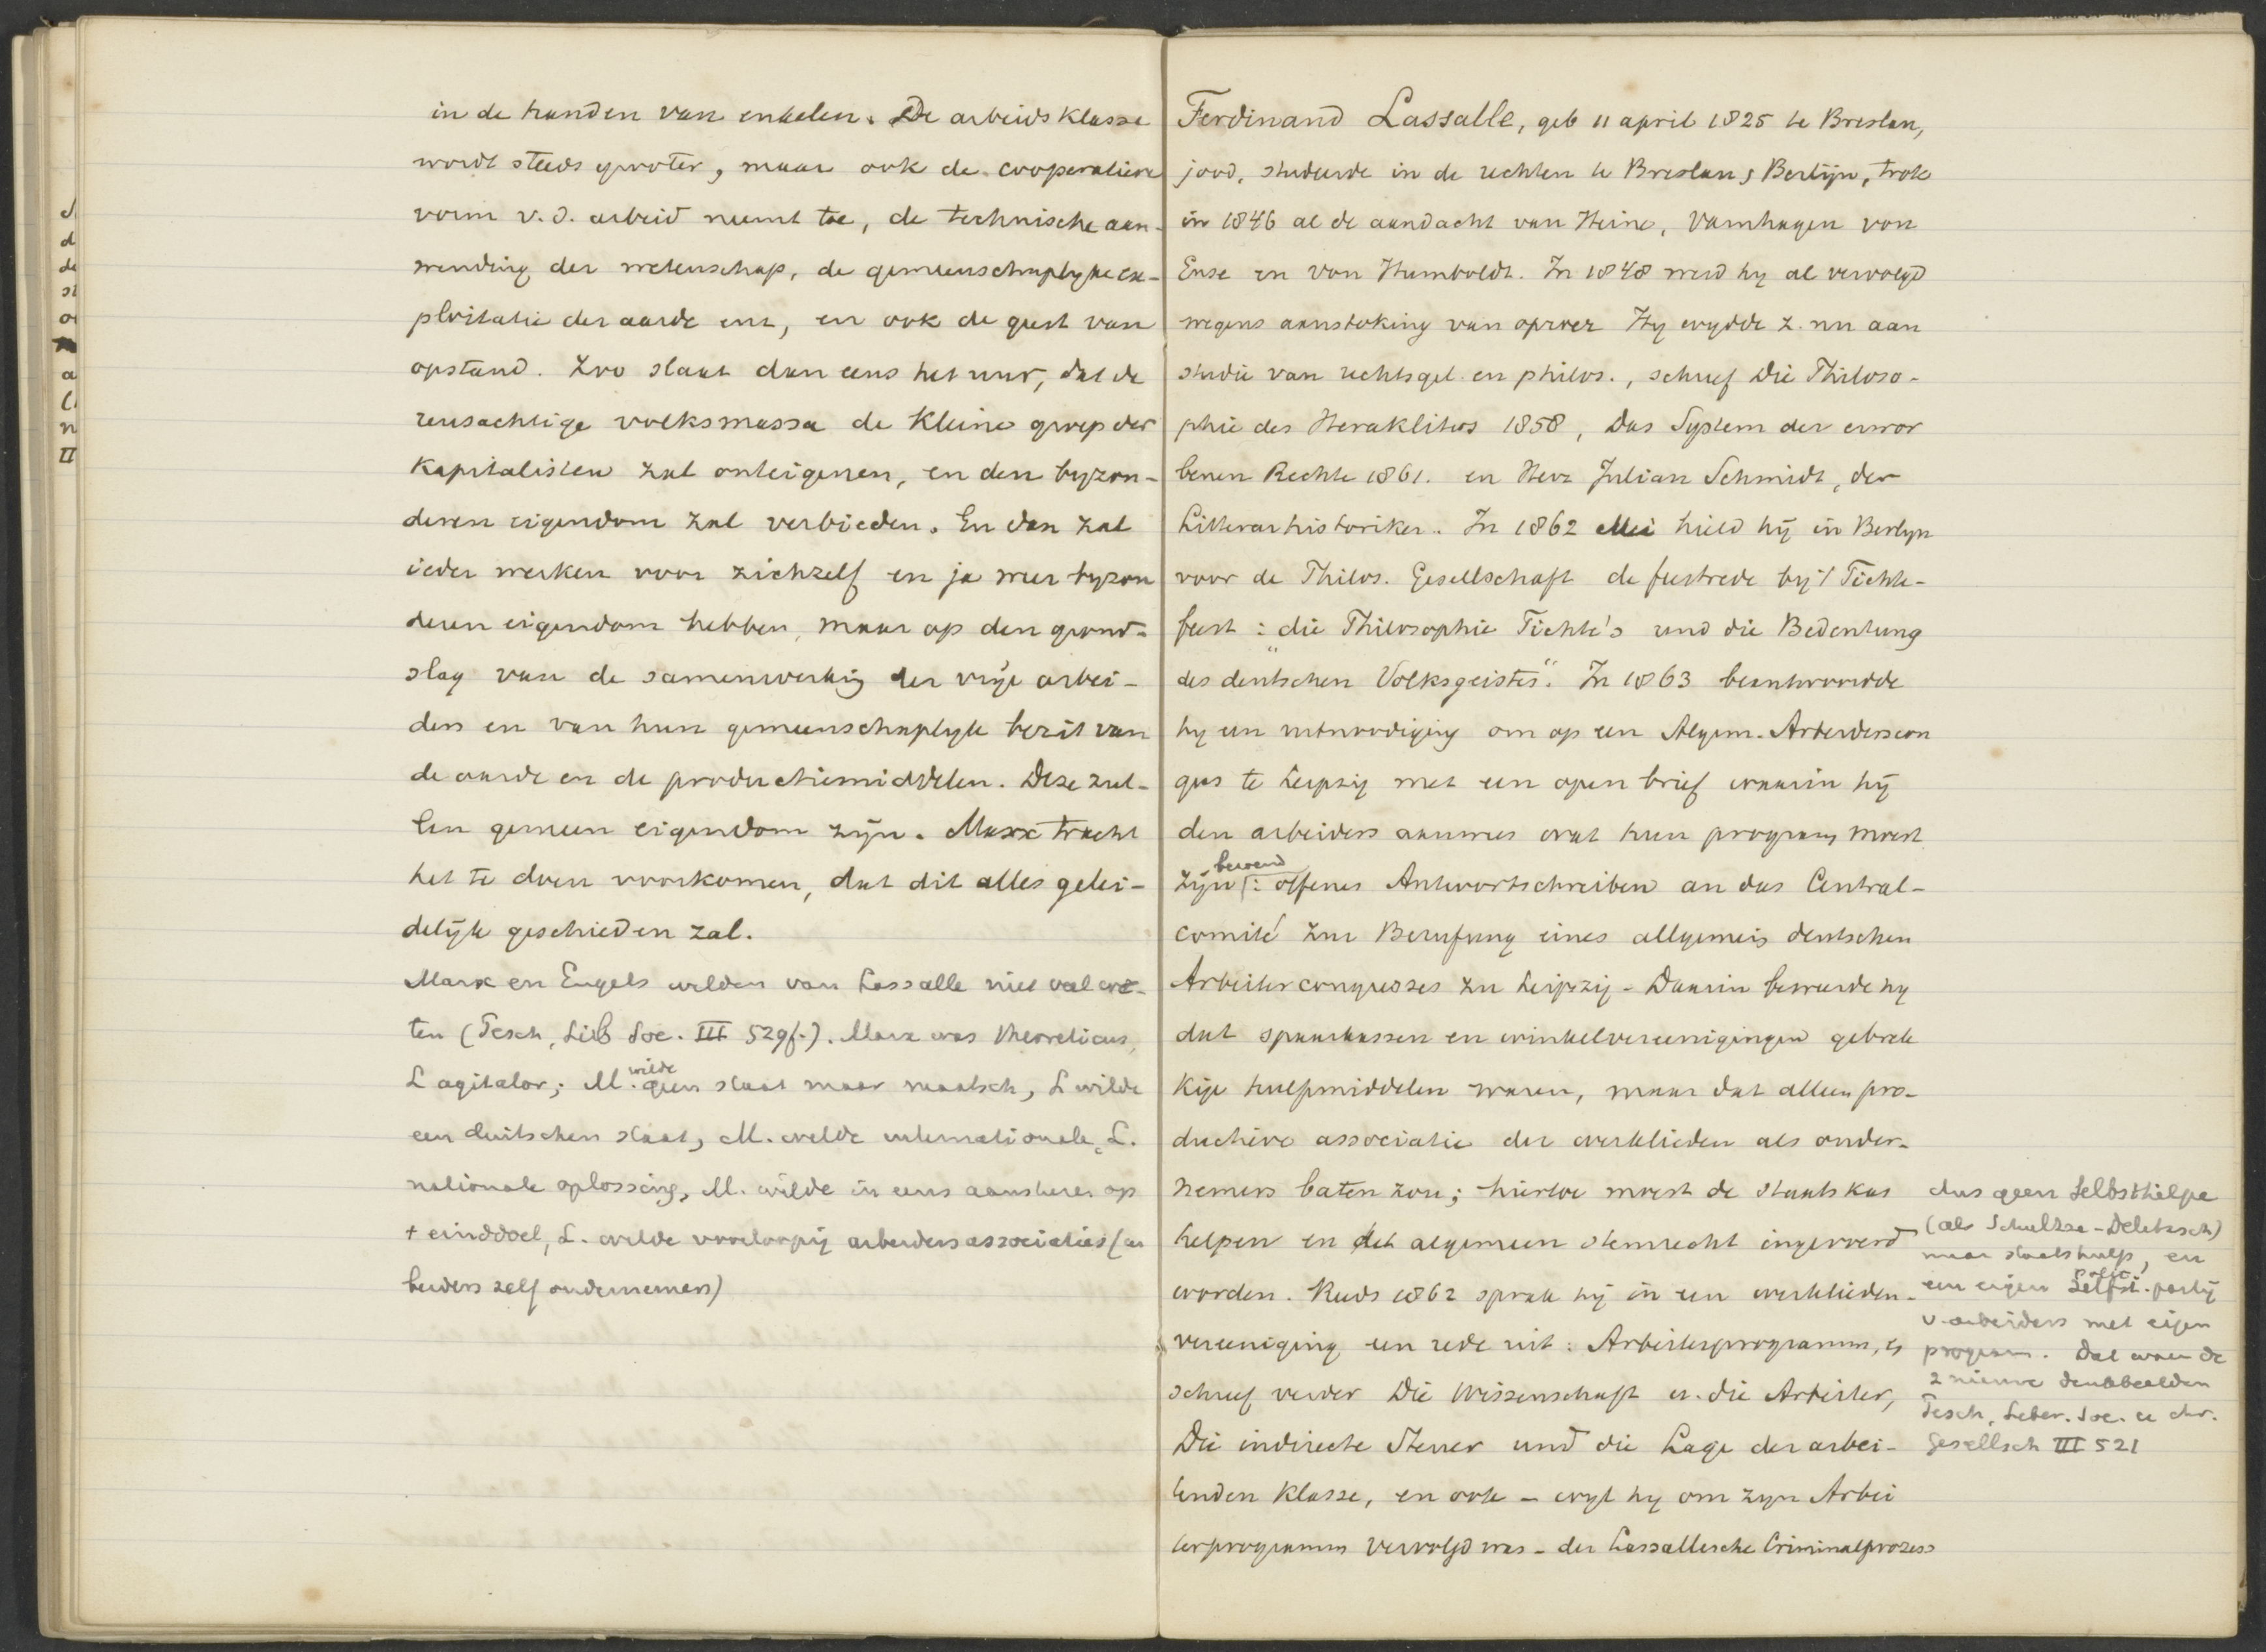 in de handen van enkelen. De arbeidsklasse
wordt steeds grooter, maar ook de cooperatieve
vorm v.d. arbeid neemt toe, de technische aan-
wending der wetenschap, de gemeenschaplyke ex-
ploitatie der aarde enz, en ook de geest van
opstand. Zoo slaat dan eens het uur, dat de
reusachtige volksmassa de kleine groep der
kapitalisten zal onteigenen, en den byzon-
deren eigendom zal verbieden. En dan zal
ieder werken voor zichzelf en ja weer byzon
deren eigendom hebben, maar op den grond-
slag van de samenwerking der vrije arbei-
ders en van hun gemeenschaplyk bezit van
de aarde en de productiemiddelen. Deze zul-
len gemeen eigendom zijn. Marx tracht
het te doen voorkomen, dat dit alles gelei-
delijk geschieden zal.
Marx en Engels wilden van Lassalle niet veel we-
ten (Pesch, Lib Soc. III 529f.). Marx was theoreticus,
L agitator; M. wilde geen staat maar maatsch, L wilde
een duitschen staat, M. wilde internationale, L.
nationale oplossing, M. wilde in eens aansturen op
t einddoel, L. wilde voorloopig arbeidersassociaties (ar
beiders zelf ondernemers)
Ferdinand Lassalle, geb 11 april 1825 te Breslau,
jood, studeerde in de rechten te Breslau & Berlijn, trok
in 1846 al de aandacht van Heine, Varnhagen von
Ense en von Humboldt. In 1848 werd hy al vervolgd
wegens aanstoking van oproer Hy wydde z. nu aan
studie van rechtsgel. en philos., schreef Die Philoso-
phie des Heraklitos 1858, Das System der erwor
benen Rechte 1861. en Herr Julian Schmidt, der
Litterarhistoriker. In 1862 Mei hield hij in Berlyn
voor de Philos. Gesellschaft de feestrede bij 't Fichte-
feest: "die Philosophie Fichte's und die Bedeutung
des deutschen Volksgeistes". In 1863 beantwoordde
hy een uitnoodiging om op een Algem. Arbeiderscon
gres te Leipzig met een open brief waarin hij
den arbeiders aanwees wat hun program moest
zijn: beroemd offenes Antwortschreiben an das Central-
comité zur Berufung eines allgemein deutschen
Arbeitercongresses zu Leipzig - Daarin beweerde hy
dat spaarkassen en winkelvereenigingen gebrek
kige hulpmiddelen waren, maar dat alleen pro-
ductieve associatie der werklieden als onder-
nemers baten zou; hiertoe moest de staatskas
helpen en het algemeen stemrecht ingevoerd
worden. Reeds 1862 sprak hij in een werklieden-
vereeniging een rede uit: Arbeiterprogramm, en
schreef verder Die Wissenschaft u. die Arbeiter,
Die indirecte Steuer und die Lage der arbei-
tenden Klasse, en ook - wyl hy om zyn Arbei
terprogramm vervolgd was - der Lassallesche Criminalprozess
dus geen Selbsthilfe
(als Schultze-Delitzsch)
maar staatshulp, en
een eigen partij
v. arbeiders met eigen
program. Dat waren de
2 nieuwe denkbeelden
Pesch, Liber. Soc. u chr.
Gesellsch III 521